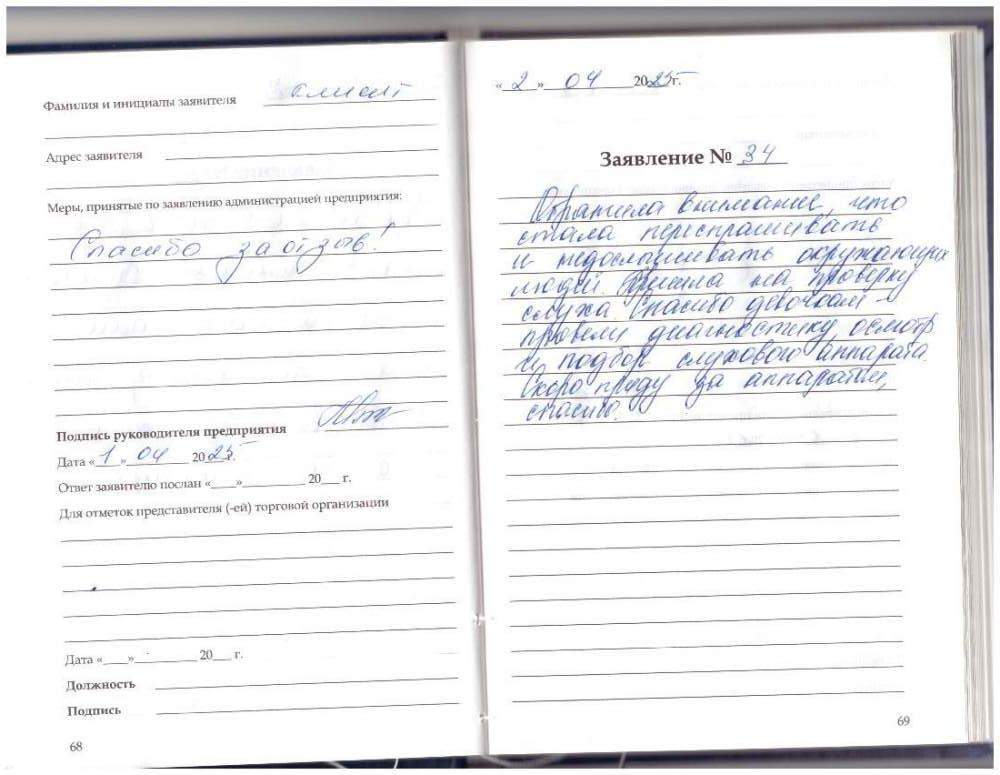 Фамилия и инициалы заявителя клиент
Адрес заявителя
Меры, принятые по заявлению администрацией предприятия:
Спасибо за отзыв!
Подпись руководителя предприятия
Дата «1» 04 2025г.
Ответ заявителю послан «___»__________ 20___ г.
Для отметок представителя (-ей) торговой организации
Дата «____»__________ 20___ г.
Должность
Подпись
68
«2» 04 2025г.
Заявление № 34
Обратила внимание, что
стала переспрашивать
и недослышивать окружающих
людей. Пришла на проверку
слуха. Спасибо девочкам -
провели диагностику, осмотр
и подбор слухового аппарата.
Скоро приду за аппаратом,
спасибо.
69